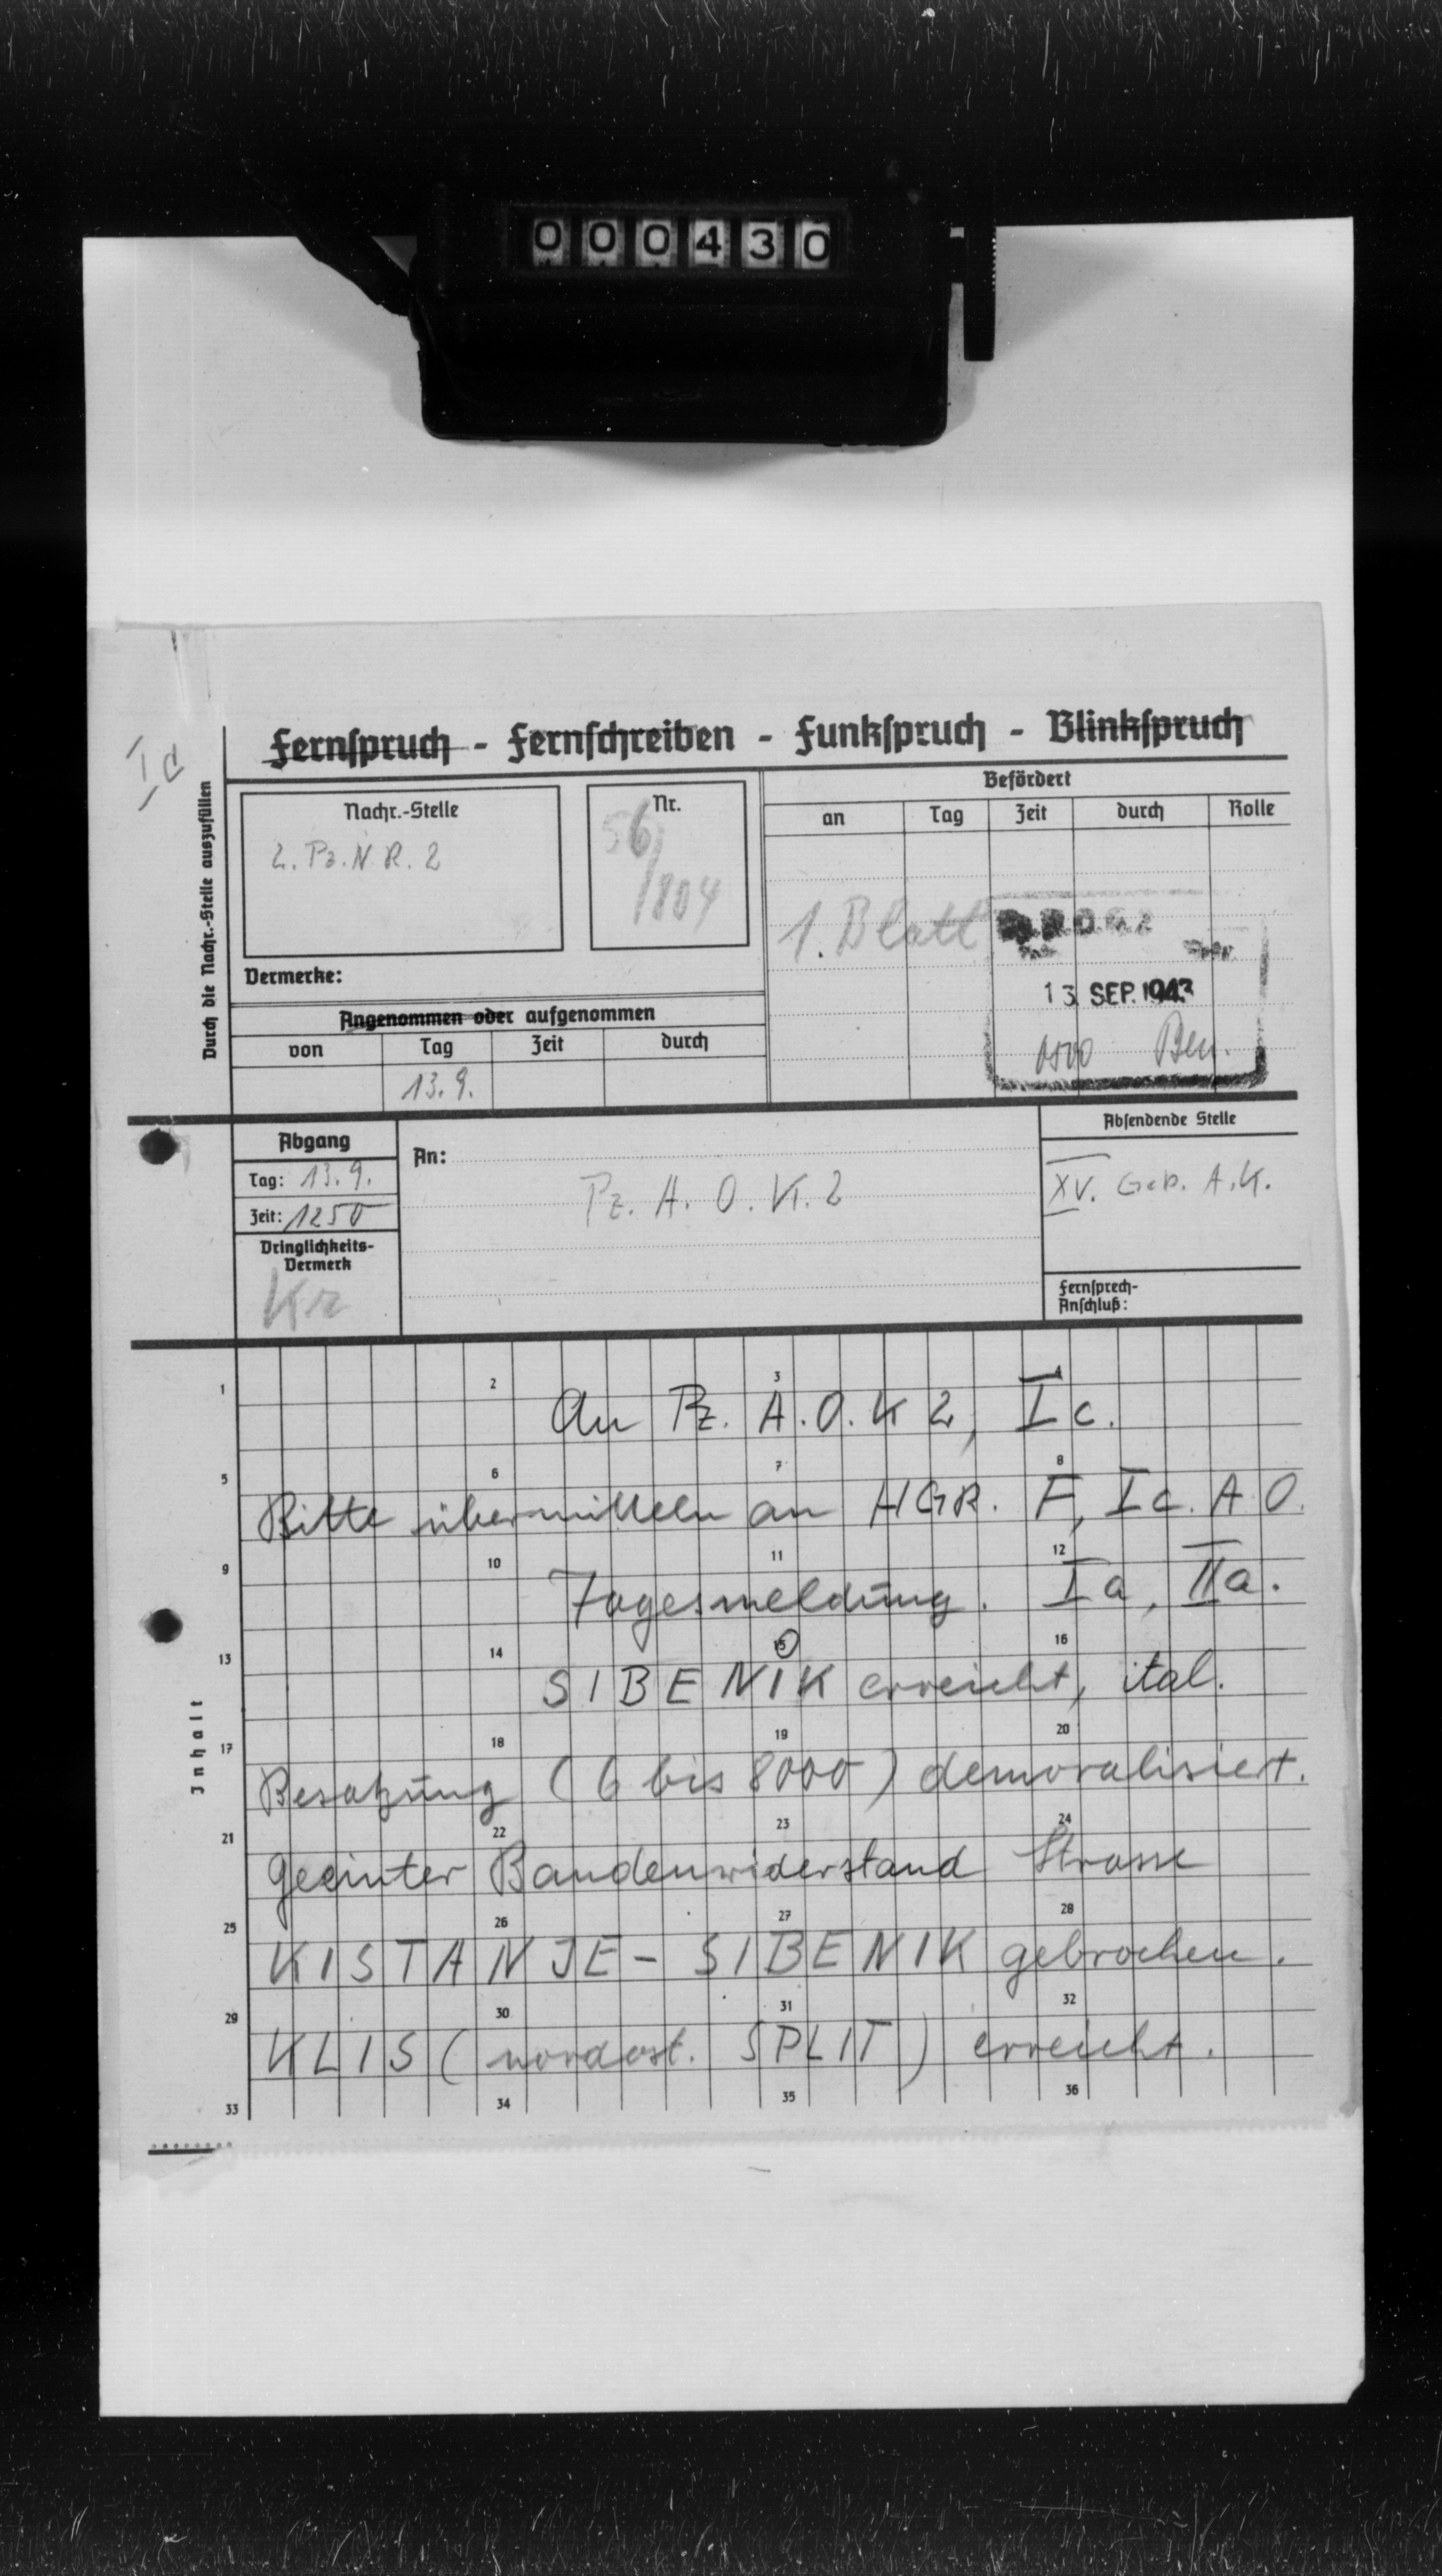 000430
Ic
Fernspruch - Fernschreiben - Funkspruch - Blinkspruch
Durch die Nachr.-Stelle auszufüllen
Nachr.-Stelle
2. Pz. N. R. 2
Nr.
56/
1804
Befördert
an Tag Zeit durch Rolle
1. Blatt
13. SEP. 1943
Vermerke:
Angenommen oder aufgenommen
von Tag Zeit durch
13. 9.
Abgang
Tag: 13. 9.
Zeit: 1250
Dringlichkeits-
Vermerk
Kr
An:
Pz. A. O. K. 2
Absendende Stelle
XV. Geb. A.K.
Fernsprech-
Anschluß:
Inhalt
1 2 3 4
An Pz. A.O.K 2, Ic.
5 6 7 8
Bitte übermitteln an HGR. F, Ic. A.O.
9 10 11 12
Tagesmeldung. Ia, IIa.
13 14 15 16
SIBENIK erreicht, ital.
17 18 19 20
Besatzung (6 bis 8000) demoralisiert.
21 22 23 24
Geeinter Bandenwiderstand Strasse
25 26 27 28
KISTANJE - SIBENIK gebrochen.
29 30 31 32
KLIS (nordost. SPLIT) erreicht.
33 34 35 36